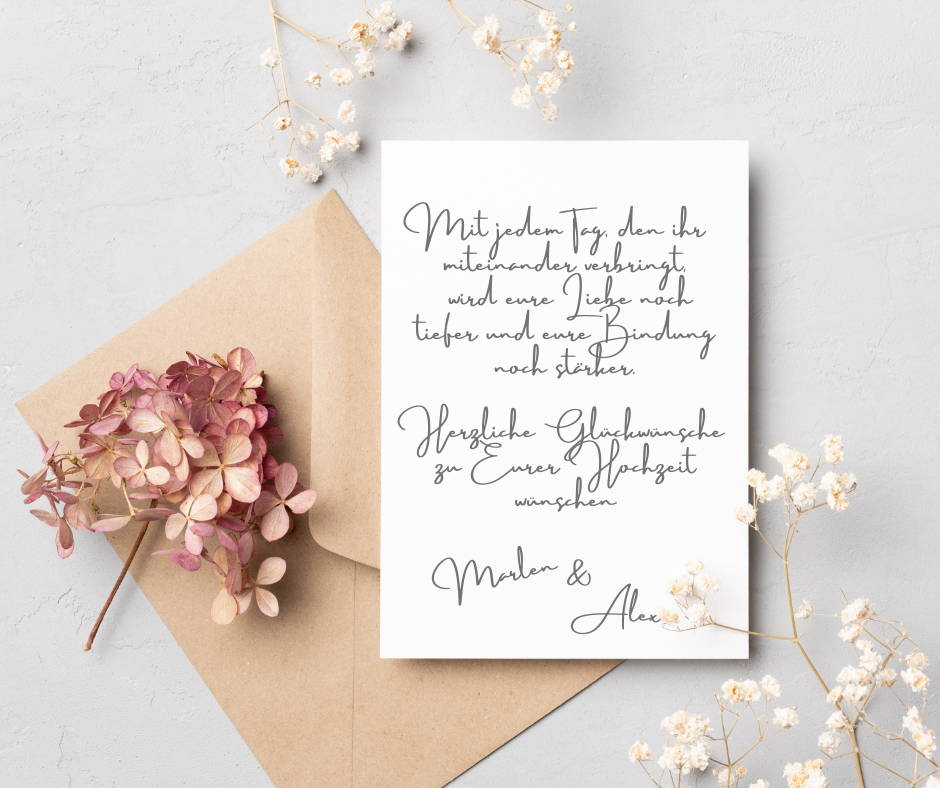 Mit jedem Tag, den ihr
miteinander verbringt,
wird eure Liebe noch
tiefer und eure Bindung
noch stärker.
Herzliche Glückwünsche
zu Eurer Hochzeit
wünschen
Marlen &
Alex